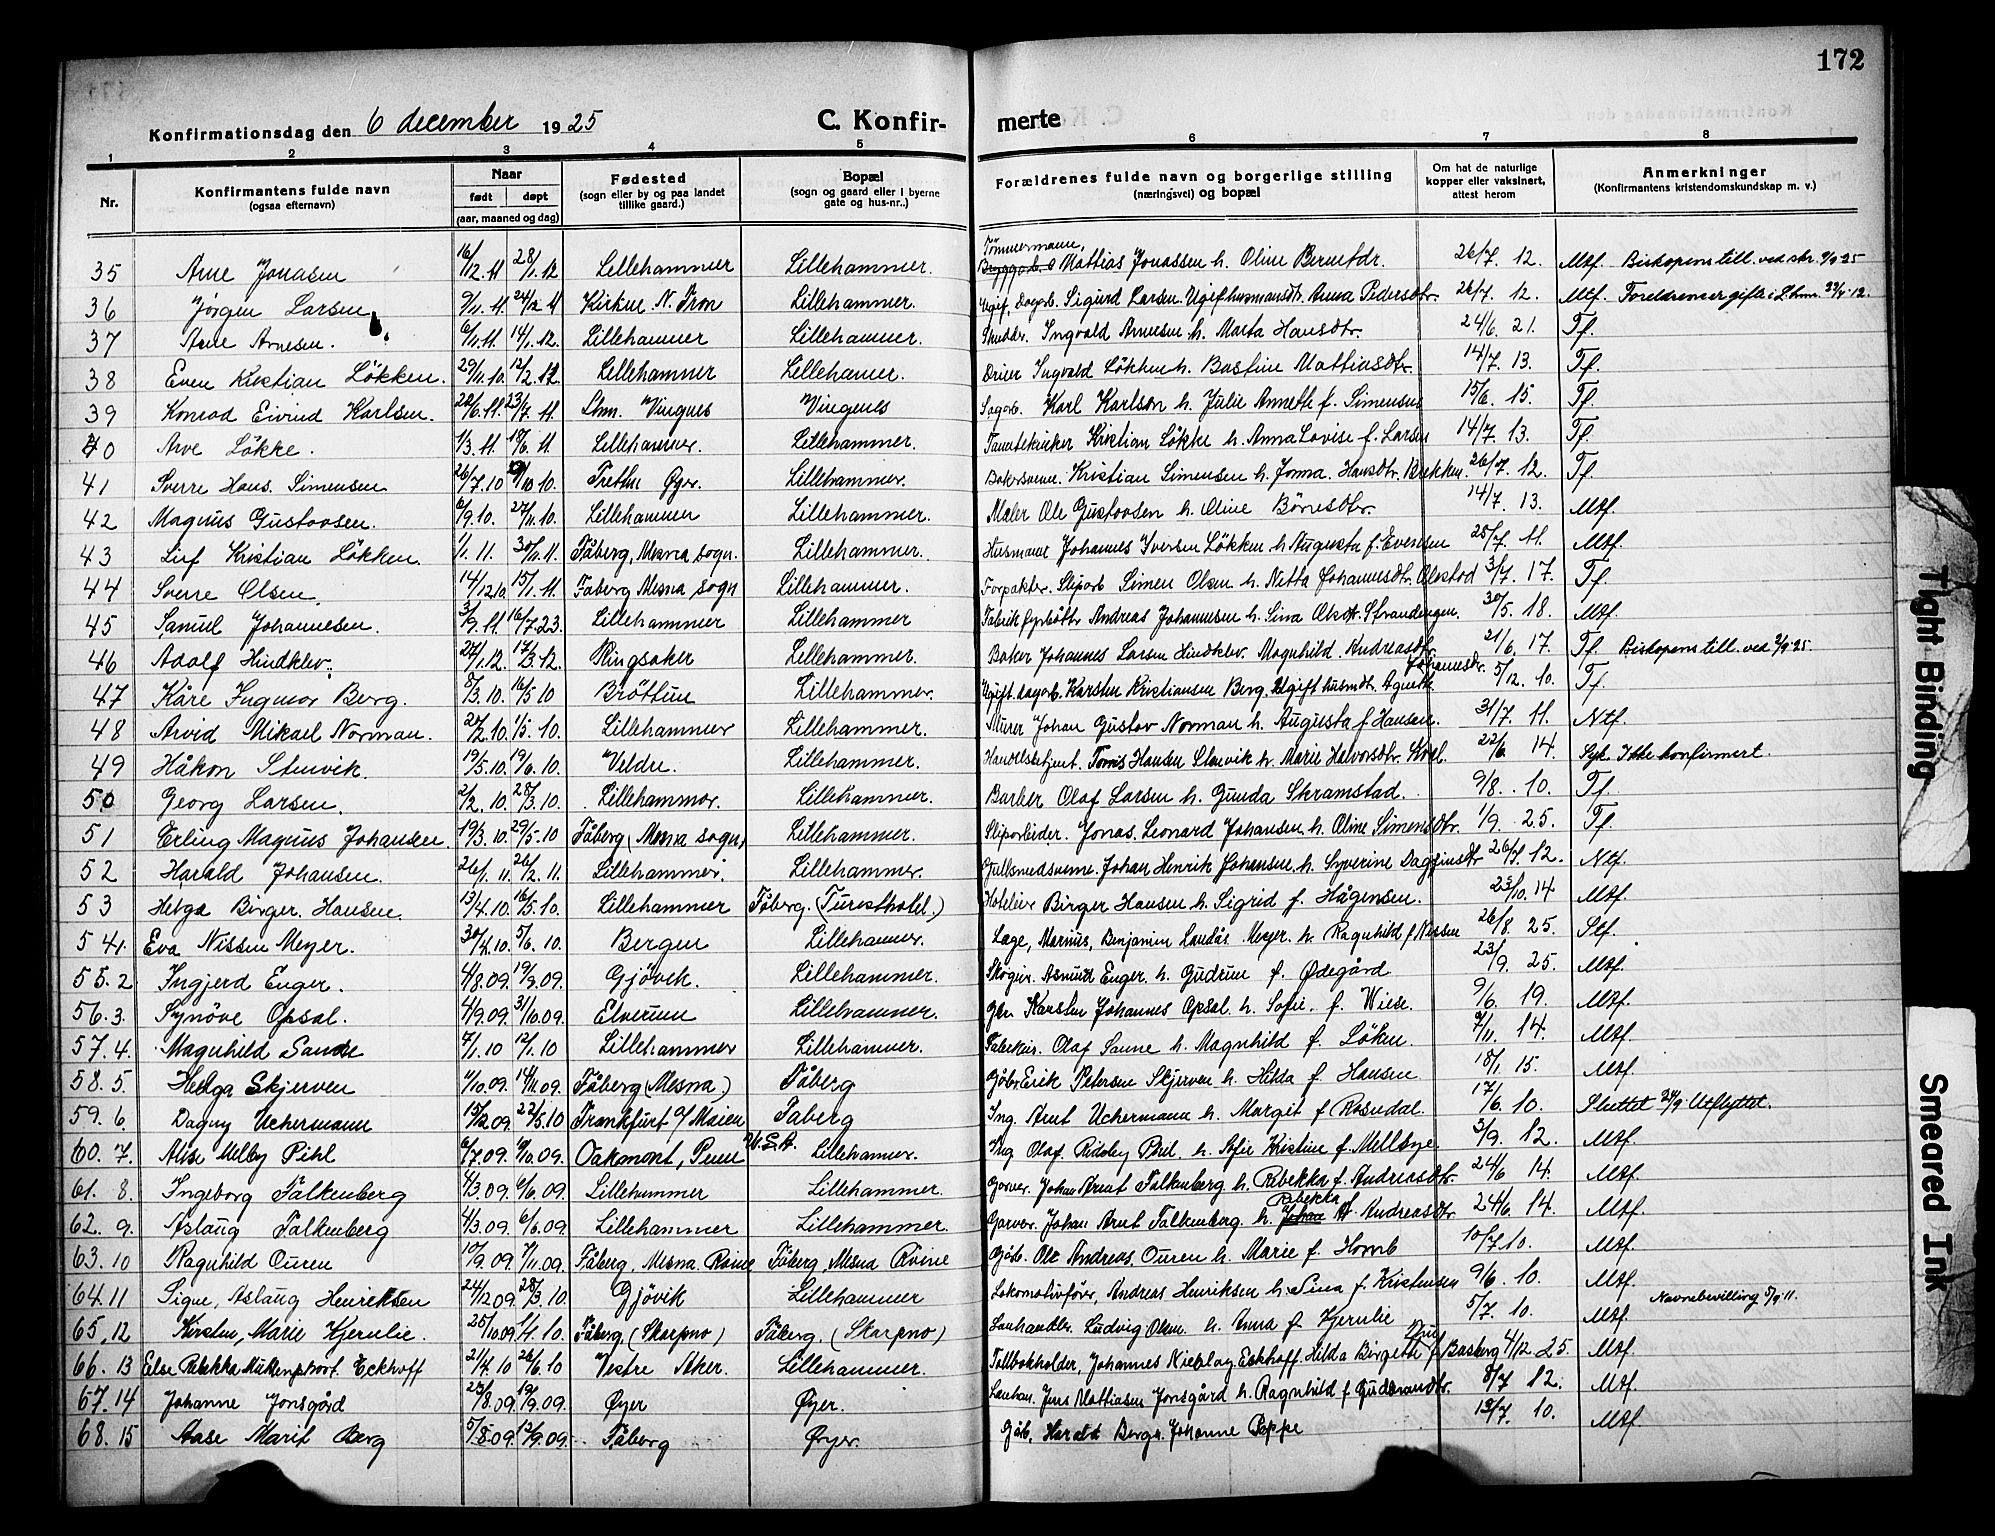 172
Konfirmationsdag den 6 december 1925 C. Konfir- merte
1 2 3 4 5 6 7 8
Nr. Konfirmantens fulde navn (ogsaa efternavn) Naar født døpt (aar, maaned og dag) Fødested (sogn eller by og paa landet tillike gaard.) Bopæl (sogn og gaard eller i byerne gate og hus-nr..) Forældrenes fulde navn og borgerlige stilling (næringsvei) og bopæl Om hat de naturlige kopper eller vaksinert, attest herom Anmerkninger (Konfirmantens kristendomskundskap m. v.)
Tömmermann,
35 Arne Jonasen 16/12.11 28/1.12 Lillehammer Lillehammer. Mattias Jonassen h. Oline Berntdr. 26/7. 12. Mtf. Biskopens till. ved skr. 9/9 25
36 Jörgen Larsen 9/11.11. 24/12 11 Kirken N. Fron Lillehammer. Ugif. Dagarb. Sigurd Larsen Ugif husmansdtr. Anna Pedersdtr. 26/7. 12. Mtf. Foreldrene er gifte i Lhmr. 23/4.12.
37 Arne Arnesen. 6/11.11. 14/1.12. Lillehammer Lillehammer. Skredder. Ingvald Arnesen h. Marta Hansdtr. 24/6. 21. Tf.
38 Even Kristian Lökken. 29/11.10. 12/2.12. Lillehammer Lillehamer. Driver Ingvald Lökken h. Bastine Mattiasdtr. 14/7. 13. Tf.
39 Konrad Eivind Karlsen. 28/6.11. 23/7. 11. Lhm. Vingnes Vingnes Sagarb. Karl Karlson h. Julie Annette f. Simensen 15/6. 15. Tf.
40 Arve Lökke. 1/3.11. 18/6. 11. Lillehammer. Lillehammer. Kristian Lökke h. Anna Lovise f. Larsen 14/7. 13. Tf.
41 Sverre Hans. Simensen 26/7.10 29/10 10. Fretten Øyer. Lillehammer. Bakersvenn. Kristian Simensen h. Jonna Hansdtr. Brekken. 26/7. 12. Tf.
42 Magnus Gustavsen. 6/9.10. 27/11.10. Lillehammer Lillehammer. Maler Ole Gustavsen h. Oline Börresdtr. 14/7. 13. Mtf.
43 Leif Kristian Lökken. 1/1. 11. 30/4.11. Fåberg, Mesna sogn. Lillehammer. Husmann Johannes Iversen Lökken h. Augusta f. Evensen 25/7. 11. Mtf.
44 Sverre Olsen. 14/12 10 15/1.11. Fåberg Mesna sogn Lillehammer. Forpakter. Sliparb Simen Olsen h. Netta Johannesdtr. Olestad 3/7. 17. Tf.
45 Samuel Johannesen. 3/9.11 16/7.23. Lillehammer Lillehammer Fabrik fyrböter Andreas Johannesen h. Sina Olsdtr. Strandengen. 30/5. 18. Mtf.
46 Adolf Hindklev. 24/1.12. 17/3.12. Ringsaker Lillehammer. Baker Johannes Larsen Hindklev. Magnhild. Andreasdtr. 21/6. 17. Tf. Biskopens till. ved 2/9 25.
47 Kåre Ingmar Berg. 8/3.10. 16/5 10 Bröttum Lillehammer. Ugift. dagarb. Karsten Kristiansen Berg. Ugift husmdtr. Agnette Johannesdtr. 5/12. 10. Tf.
48 Arvid Mikael Norman. 20/2.10. 1/5. 10. Lillehammer Lillehammer. Murer Johan Gustav Norman h. Augusta f Hansen. 31/7. 11. Ntf.
49 Håkon Stenvik. 19/5.10. 19/6. 10. Veldre. Lillehammer. Handelsbetjent. Tomis Hansen Stenvik h. Marie Halvorsdtr. 22/6. 14. Syk. Ikke konfirmert.
50 Georg Larsen. 2/2. 10. 28/3. 10. Lillehammer. Lillehammer. Barber Olaf Larsen h. Gunda Skramstad. 9/8. 10. Tf.
51 Erling Magnus Johansen 19/3. 10. 29/5.10 Fåberg (Mesna sogn) Lillehammer. Sliparbeider. Jonas. Leonard Johansen h. Oline Simensdtr. 1/9. 25. Tf.
52 Harald Johansen. 26/1. 11. 26/2. 11. Lillehammer. Lillehammer. Gullsmedsvenne. Johan Henrik Johansen. h. Syverine Dagfinsdtr 26/7. 12. Ntf.
53 Helga Birger. Hansen. 13/4.10. 16/5.10. Lillehammer Fåberg. (Turisthotel.) Hoteleier Birger Hansen h. Sigrid f. Hågensen. 23/10. 14. Mtf.
54 1. Eva Nissen Meyer. 30/4.10. 5/6. 10. Bergen Lillehamer. Læge, Marius, Benjamin Landås Meyer. h. Ragnhild f. Nissen 26/8. 25. Stf.
55. 2 Ingjerd Enger. 4/8.09. 19/9.09. Gjövik. Lillehammer. Skogin. Asmund Enger. h. Gudrun f. Ødegård 23/9. 25. Mtf.
56. 3. Synöve Opsal. 4/9.09. 31/10.09. Elverum Lillehammer. Karsten Johannes Opsal. h. Sofie. f. Wiese. 9/6. 19. Mtf.
57. 4. Magnhild Sande 4/1.10 12/1.10 Lillehammer Lillehamer. Olaf Sanne h. Magnhild f. Löken. 9/11. 14. Mtf.
58. 5. Helga Skjerven 11/10.09. 14/11.09. Fåberg (Mesna) Fåberg Gdbr. Erik Petersen Skjerven h. Hilda f. Hansen 18/1. 15. Mtf.
59. 6. Dagny Uchermann 15/12 09. 22/5.10 Frankfurt a/ Maien Fåberg Ing. Arnt Uchermann h. Margit f Rosendal. 17/6. 10. Sluttet 24/9 Utflyttet.
60. 7. Alise Melby Pihl 6/7.09. 10/10.09. Oakmont, Penn U.S.A. Lillehamer. Ing Olaf. Ridley Pihl. h. Sofie Kristine f. Mellbye. 3/9. 12. Mtf.
61. 8. Ingeborg Falkenberg 4/3.09. 6/6.09. Lillehammer Lillehammer. Garver. Johan Arnt Falkenberg h. Rebekka f. Andreasdtr. 24/6 14. Mtf.
62. 9. Aslaug Falkenberg 4/3.09. 6/6.09. Lillehammer Lillehammer Garver. Johan Arnt Falkenberg. h. Johan Rebekka f. Andreasdtr 24/6. 14. Mtf.
63. 10 Ragnhild Ouren 10/9.09. 7/11.09. Fåberg, Mesna. Roine Fåberg, Mesna Roine Gdb. Ole Andreas. Ouren h. Marie f. Homb 10/7.10. Mtf.
64. 11 Signe, Aslaug Henriksen 24/12 09. 28/3. 10. Gjövik Lillehammer Lokomotivförer, Andreas Henriksen h. Lina f. Kristensen 9/6. 10. Mtf. Navnebevilling 5/9 11.
65, 12 Kirsten, Marie Kjernlie. 25/10.09 1/1. 10. Fåberg (Skarpno) Fåberg. (Skarpno) Lanhandlr. Ludvig Olsen. h. Anna f Kjernlie 5/7. 10. Mtf.
66. 13 Else Rebekka Munkenphort. Eckhoff 21/4 10 26/6 10 Vestre Aker. Lillehammer. Tollbokholder, Johannes Nicolay. Eckhoff. Hilda Birgette f. Basberg 4/12 25. Mtf.
67. 14 Johanne Jonsgård 23/8.09. 19/9.09. Øyer Øyer. Lanhan. Jens Mattiasen Jonsgård h. Ragnhild f Gudbrandtr. 8/7 12. Mtf.
68. 15 Aase Marit Berg 5/8 09. 12/9.09. Fåberg Øyer. Gdb. Harald Berg h. Johanne Peppe 13/7. 10. Mtf.
Tight Binding
Smeared Ink